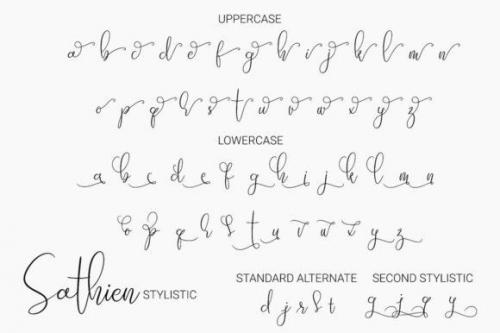 UPPERCASE
a b c d e f g h i j k l m n
o p q r s t u v w x y z
LOWERCASE
a b c d e f g h i j k l m n
o p q r s t u v w x y z
Sathien STYLISTIC
STANDARD ALTERNATE
d j r s t
SECOND STYLISTIC
g j q y